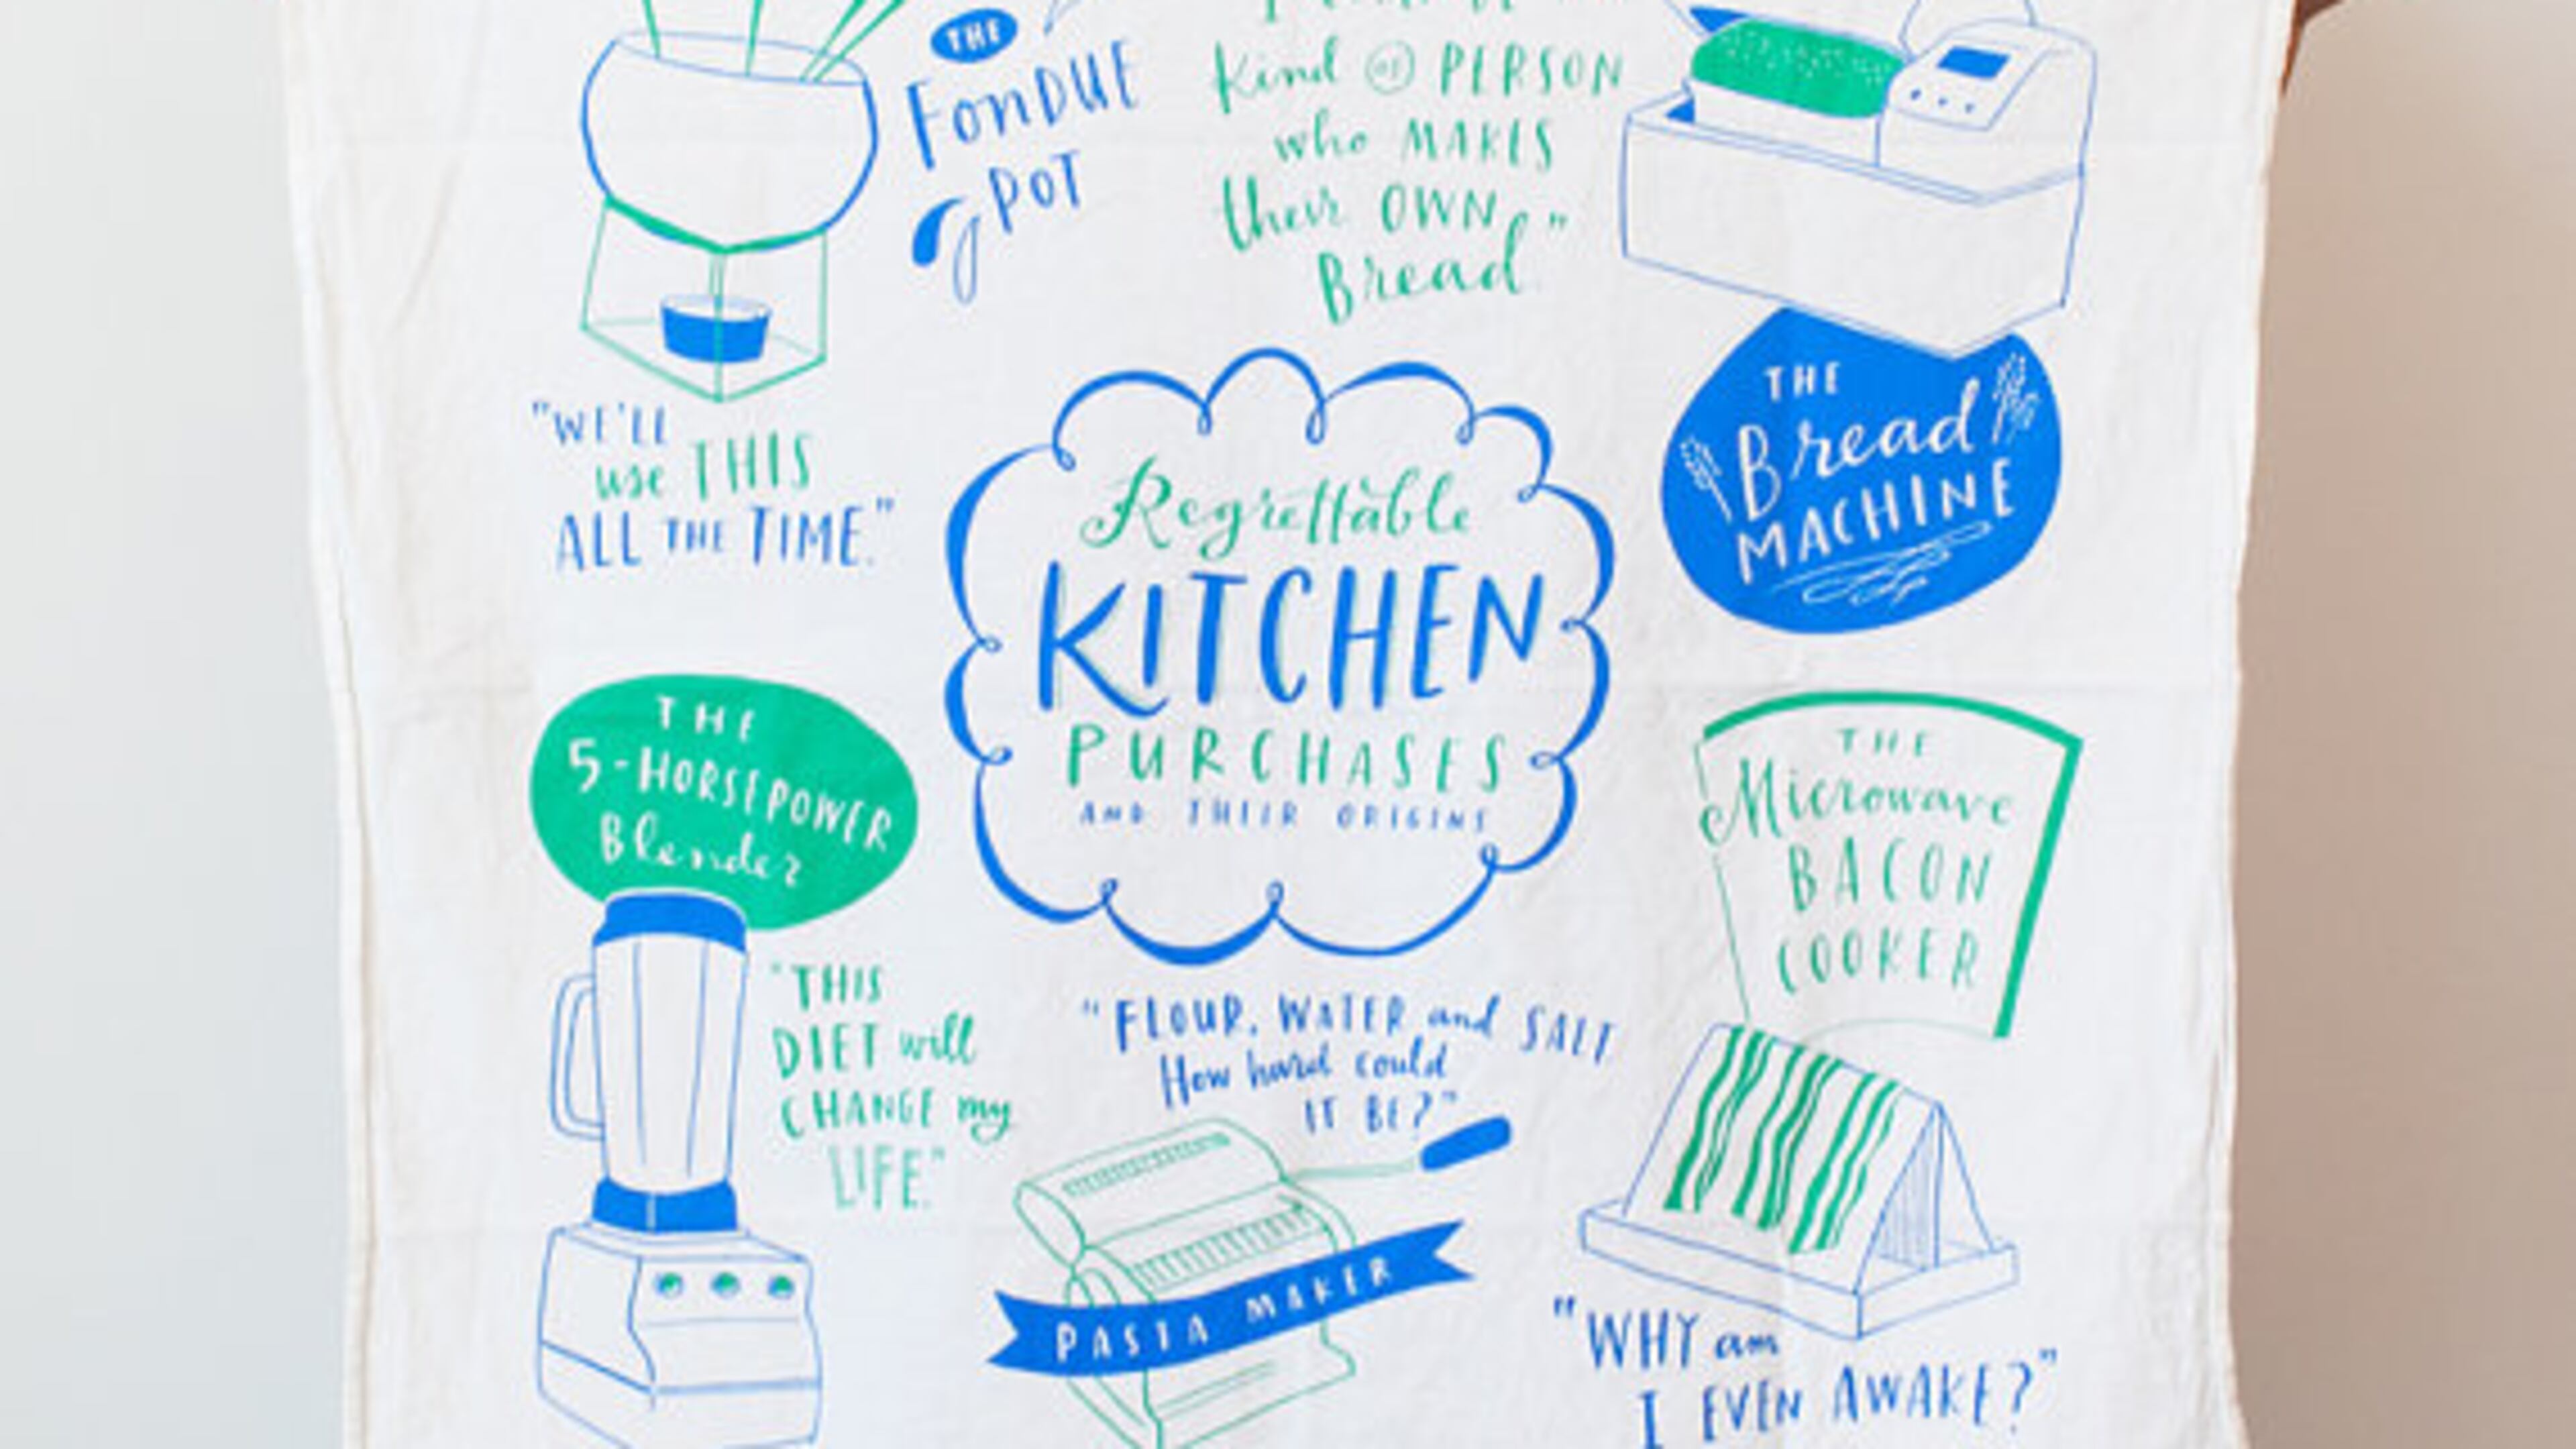 THE
FONDUE
POT
"WE'LL
use THIS
ALL THE TIME."
Kind of PERSON
who MAKES
their OWN
Bread."
THE
Bread
MACHINE
Regrettable
KITCHEN
PURCHASES
AND THEIR ORIGINS
THE
5-HORSEPOWER
Blender
"THIS
DIET will
CHANGE my
LIFE."
"FLOUR, WATER and SALT
How hard could
IT BE?"
PASTA MAKER
THE
Microwave
BACON
COOKER
"WHY am
I EVEN AWAKE?"